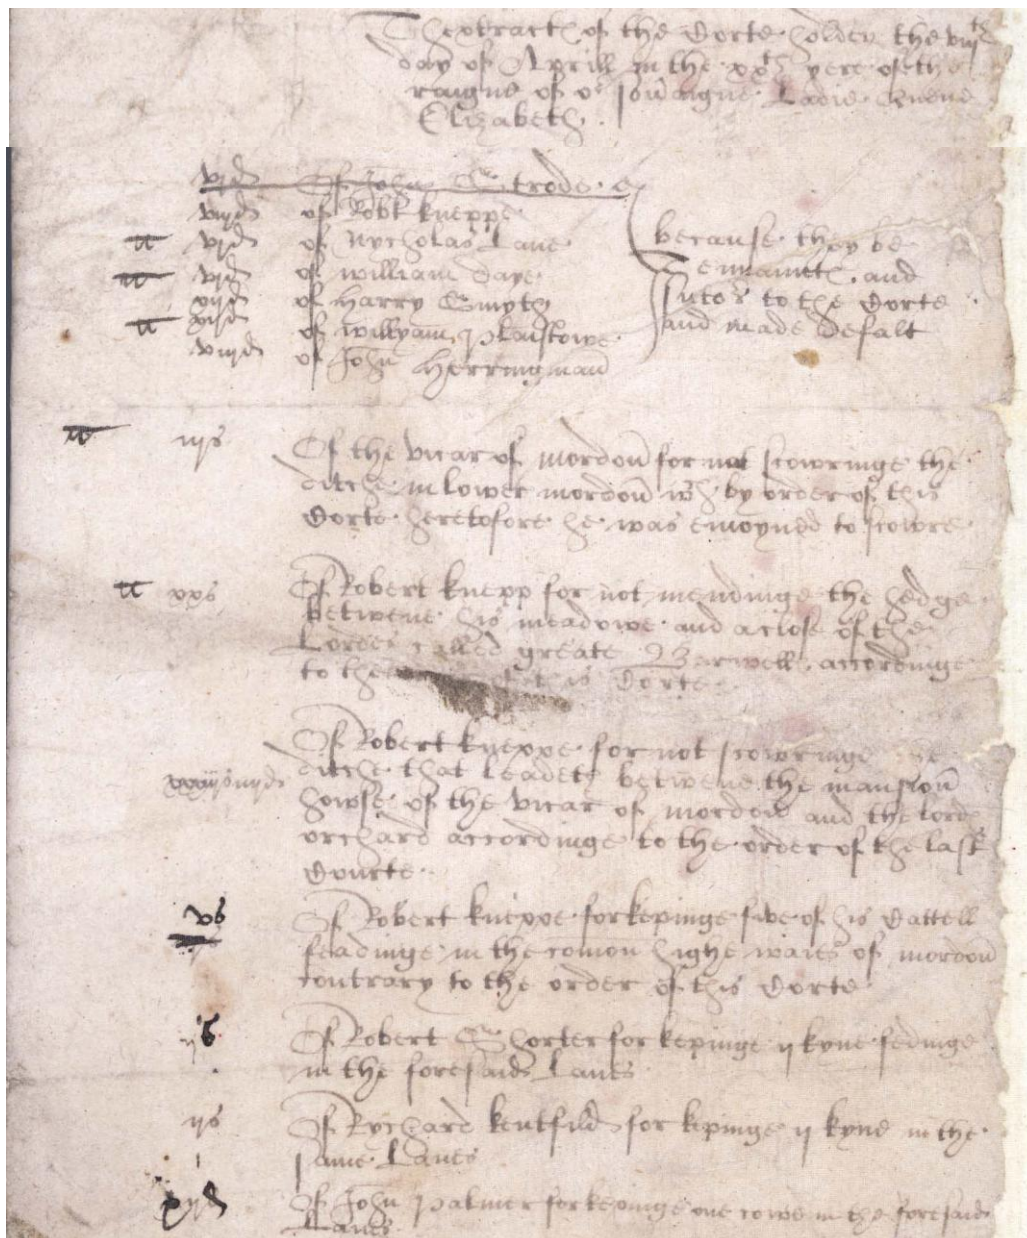 Thextracte of the Corte holden the viijth
day of Aprill in the xxth yere of the
raigne of or sovaigne Ladie Quene
Elizabeth.
vjd Of John Strode
viijd of Robt kneppe
vjd of Nycholas Lane
vjd of William Saye
xijd of Harry Smyth
xijd of Willyam Plaistowe
viijd of John Herringman
because they be
Tennaunts and
suters to the Corte
and made defalt
iijs Of the vicar of mordon for not scowringe the
ditche in lower mordon wch by order of this
Corte heretofore he was enioyned to scowre
xxs Of Robert knepp for not mendinge the hedge
betwene his meadowe and a close of the
Lordes called greate Barwell accordinge
to the of this Corte
xxxiijs iiijd Of Robert kneppe for not scowringe the
ditche that leadeth betwene the mansion
howse of the vicar of mordon and the lords
orchard accordinge to the order of the last
Courte
vs Of Robert kneppe for kepinge five of his Cattell
feadinge in the comon highe waies of mordon
contrary to the order of this Corte
ijs Of Robert Shorter for kepinge ij kyne fedinge
in the foresaid Lanes
ijs Of Rychard kentfild for kepinge ij kyne in the
same Lanes
xijd Of John Palmer for kepinge one cowe in the foresaid
Lanes